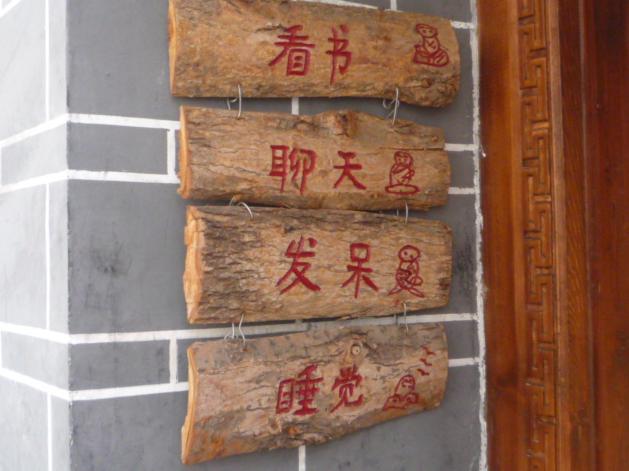 看书
聊天
发呆
睡觉